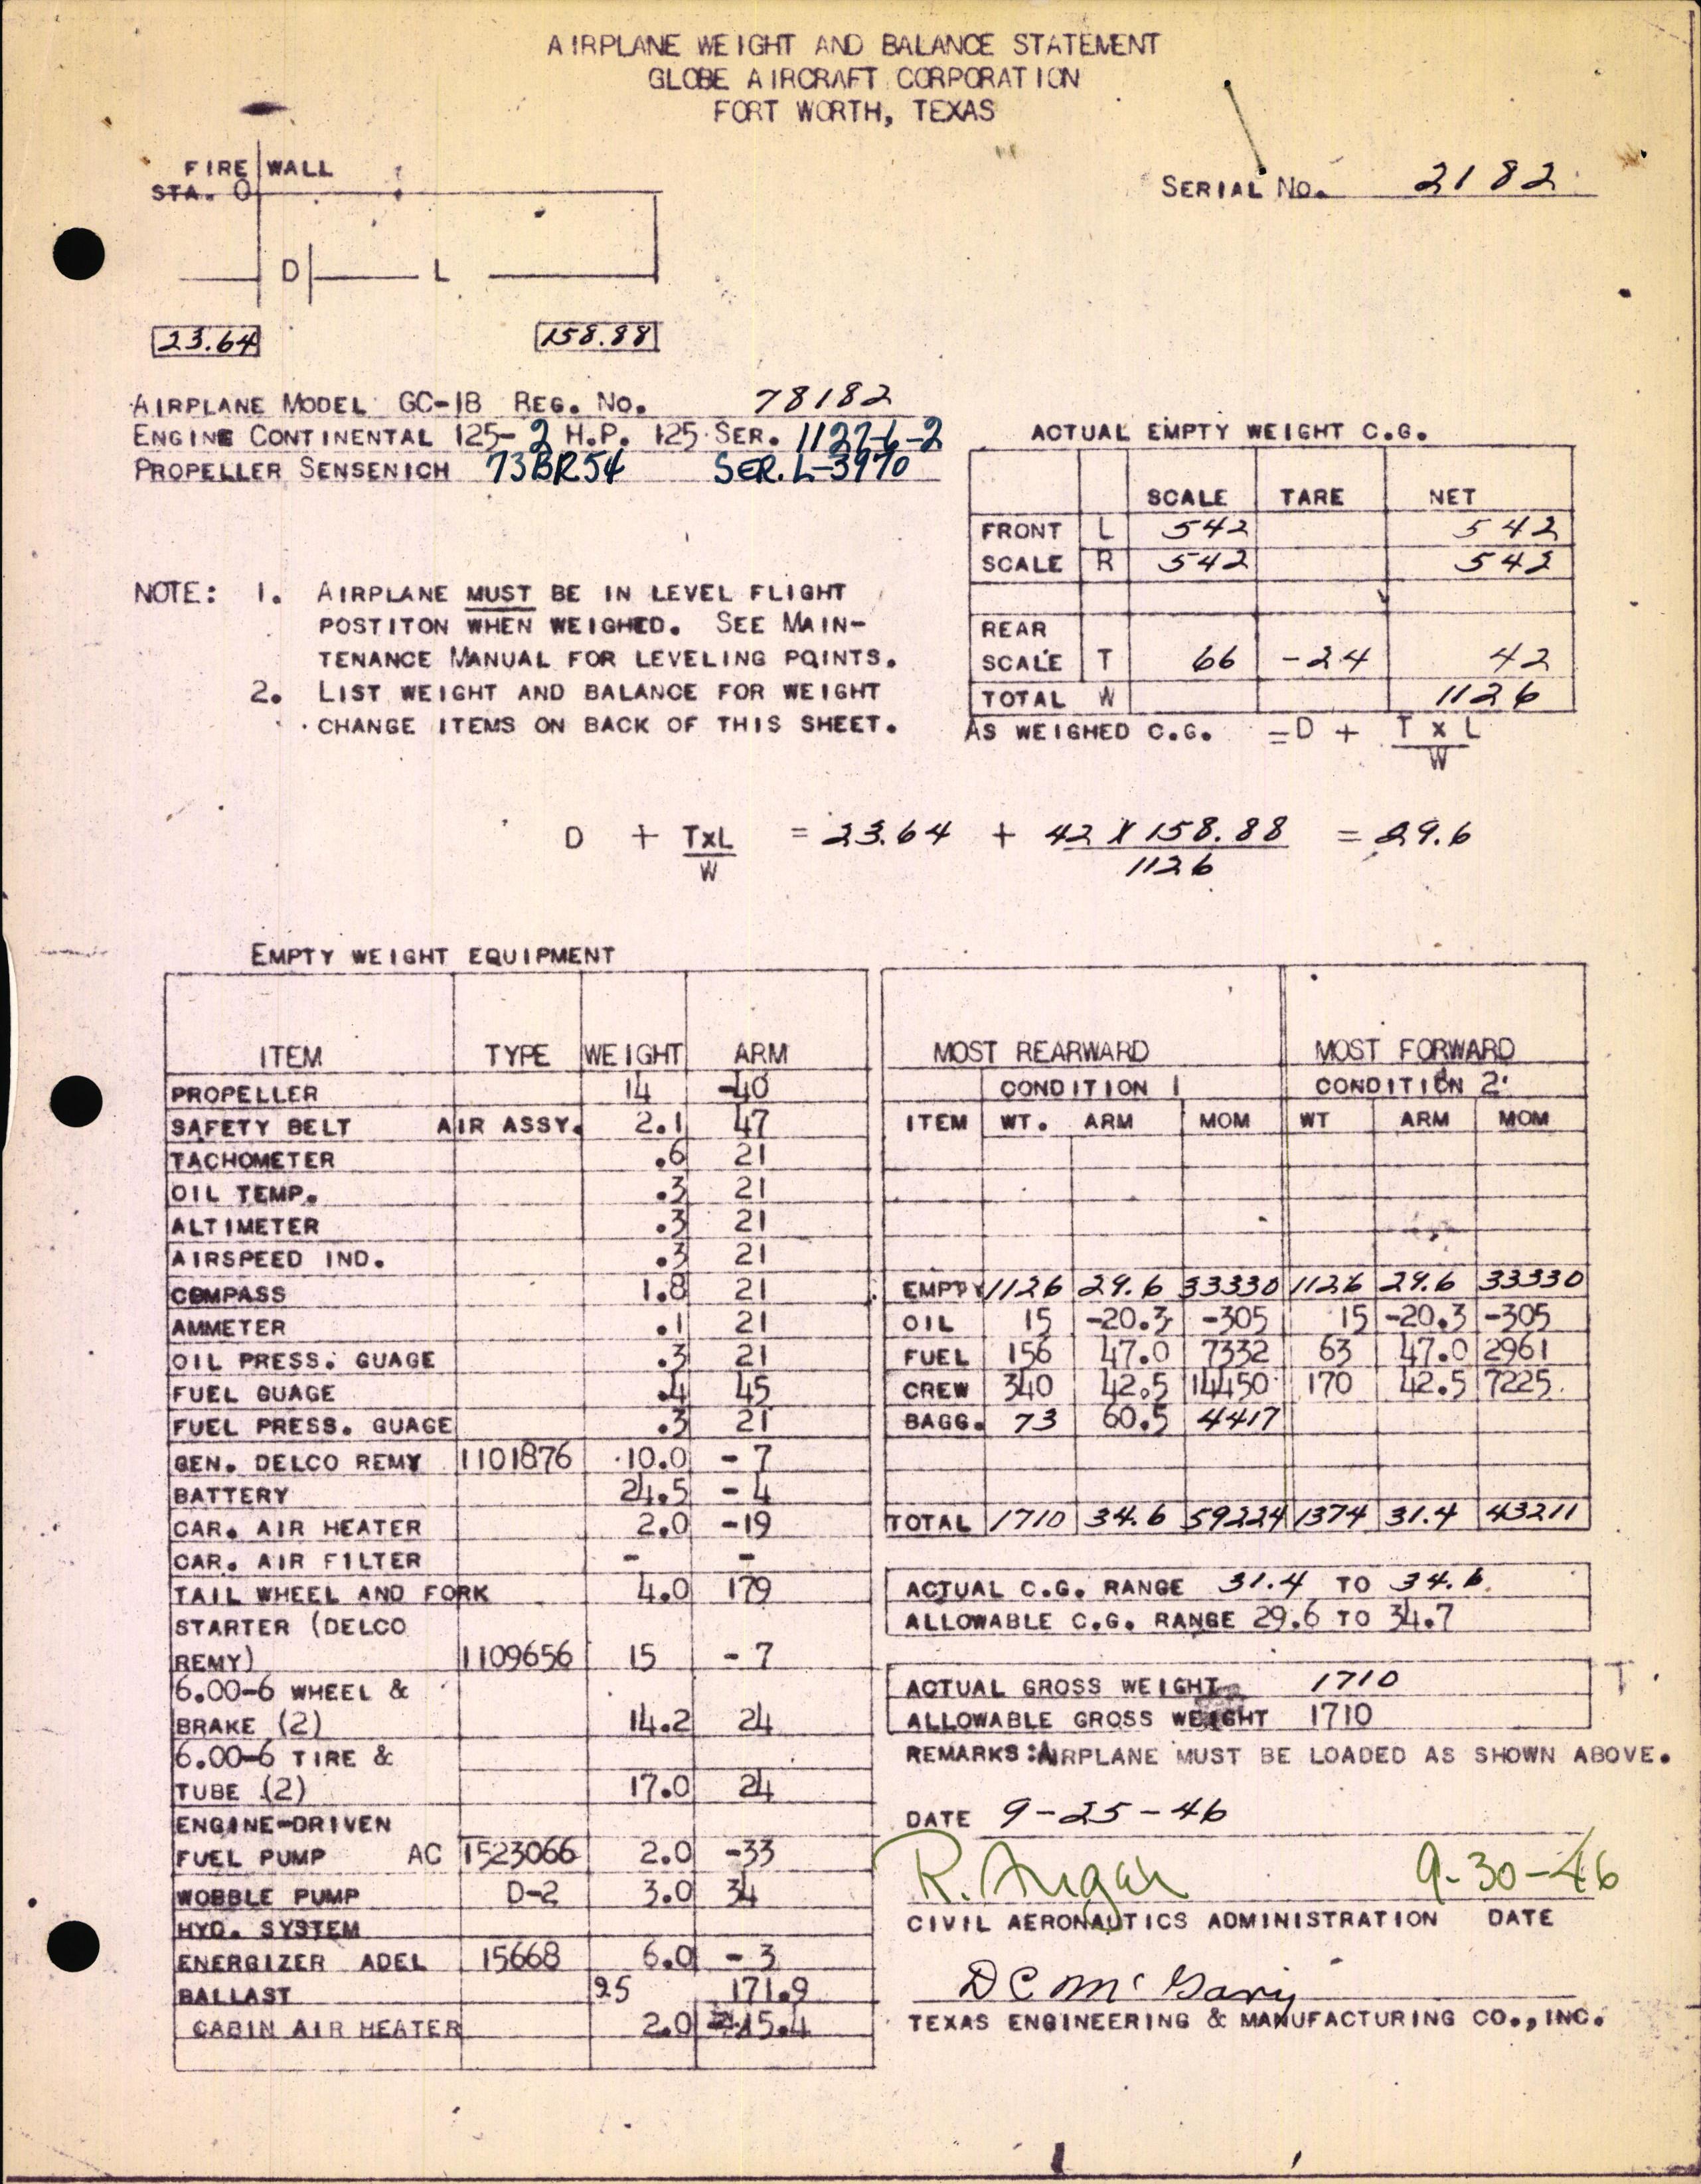 AIRPLANE WEIGHT AND BALANCE STATEMENT
GLOBE AIRCRAFT CORPORATION
FORT WORTH, TEXAS
FIRE WALL
STA. 0
SERIAL NO. 2182
D L
23.64 158.88
AIRPLANE MODEL GC-1B REG. NO. 78182
ENGINE CONTINENTAL 125-2 H.P. 125 SER. 11276-2
PROPELLER SENSENICH 73BR54 SER. L-3970
ACTUAL EMPTY WEIGHT C.G.
SCALE TARE NET
FRONT L 542 542
SCALE R 542 542
REAR
SCALE T 66 -24 42
TOTAL W 1126
AS WEIGHED C.G. = D + T X L
W
NOTE: 1. AIRPLANE MUST BE IN LEVEL FLIGHT
POSTITON WHEN WEIGHED. SEE MAIN-
TENANCE MANUAL FOR LEVELING POINTS.
2. LIST WEIGHT AND BALANCE FOR WEIGHT
CHANGE ITEMS ON BACK OF THIS SHEET.
D + TxL = 23.64 + 42 X 158.88 = 29.6
W 1126
EMPTY WEIGHT EQUIPMENT
ITEM TYPE WEIGHT ARM
PROPELLER 14 -40
SAFETY BELT AIR ASSY. 2.1 47
TACHOMETER .6 21
OIL TEMP. .3 21
ALTIMETER .3 21
AIRSPEED IND. .3 21
COMPASS 1.8 21
AMMETER .1 21
OIL PRESS. GUAGE .3 21
FUEL GUAGE .4 45
FUEL PRESS. GUAGE .3 21
GEN. DELCO REMY 1101876 10.0 - 7
BATTERY 24.5 - 4
CAR. AIR HEATER 2.0 -19
CAR. AIR FILTER - -
TAIL WHEEL AND FORK 4.0 179
STARTER (DELCO
REMY) 1109656 15 - 7
6.00-6 WHEEL &
BRAKE (2) 14.2 24
6.00-6 TIRE &
TUBE (2) 17.0 24
ENGINE-DRIVEN
FUEL PUMP AC 1523066 2.0 -33
WOBBLE PUMP D-2 3.0 34
HYD. SYSTEM
ENERGIZER ADEL 15668 6.0 - 3
BALLAST 25 171.9
CABIN AIR HEATER 2.0 15.4
MOST REARWARD MOST FORWARD
CONDITION 1 CONDITION 2
ITEM WT. ARM MOM WT ARM MOM
EMPTY 1126 29.6 33330 1126 29.6 33330
OIL 15 -20.3 -305 15 -20.3 -305
FUEL 156 47.0 7332 63 47.0 2961
CREW 340 42.5 14450 170 42.5 7225
BAGG. 73 60.5 4417
TOTAL 1710 34.6 59224 1374 31.4 43211
ACTUAL C.G. RANGE 31.4 TO 34.6
ALLOWABLE C.G. RANGE 29.6 TO 34.7
ACTUAL GROSS WEIGHT 1710
ALLOWABLE GROSS WEIGHT 1710
REMARKS: AIRPLANE MUST BE LOADED AS SHOWN ABOVE.
DATE 9-25-46
R. 9-30-46
CIVIL AERONAUTICS ADMINISTRATION DATE
D C McGary
TEXAS ENGINEERING & MANUFACTURING CO., INC.